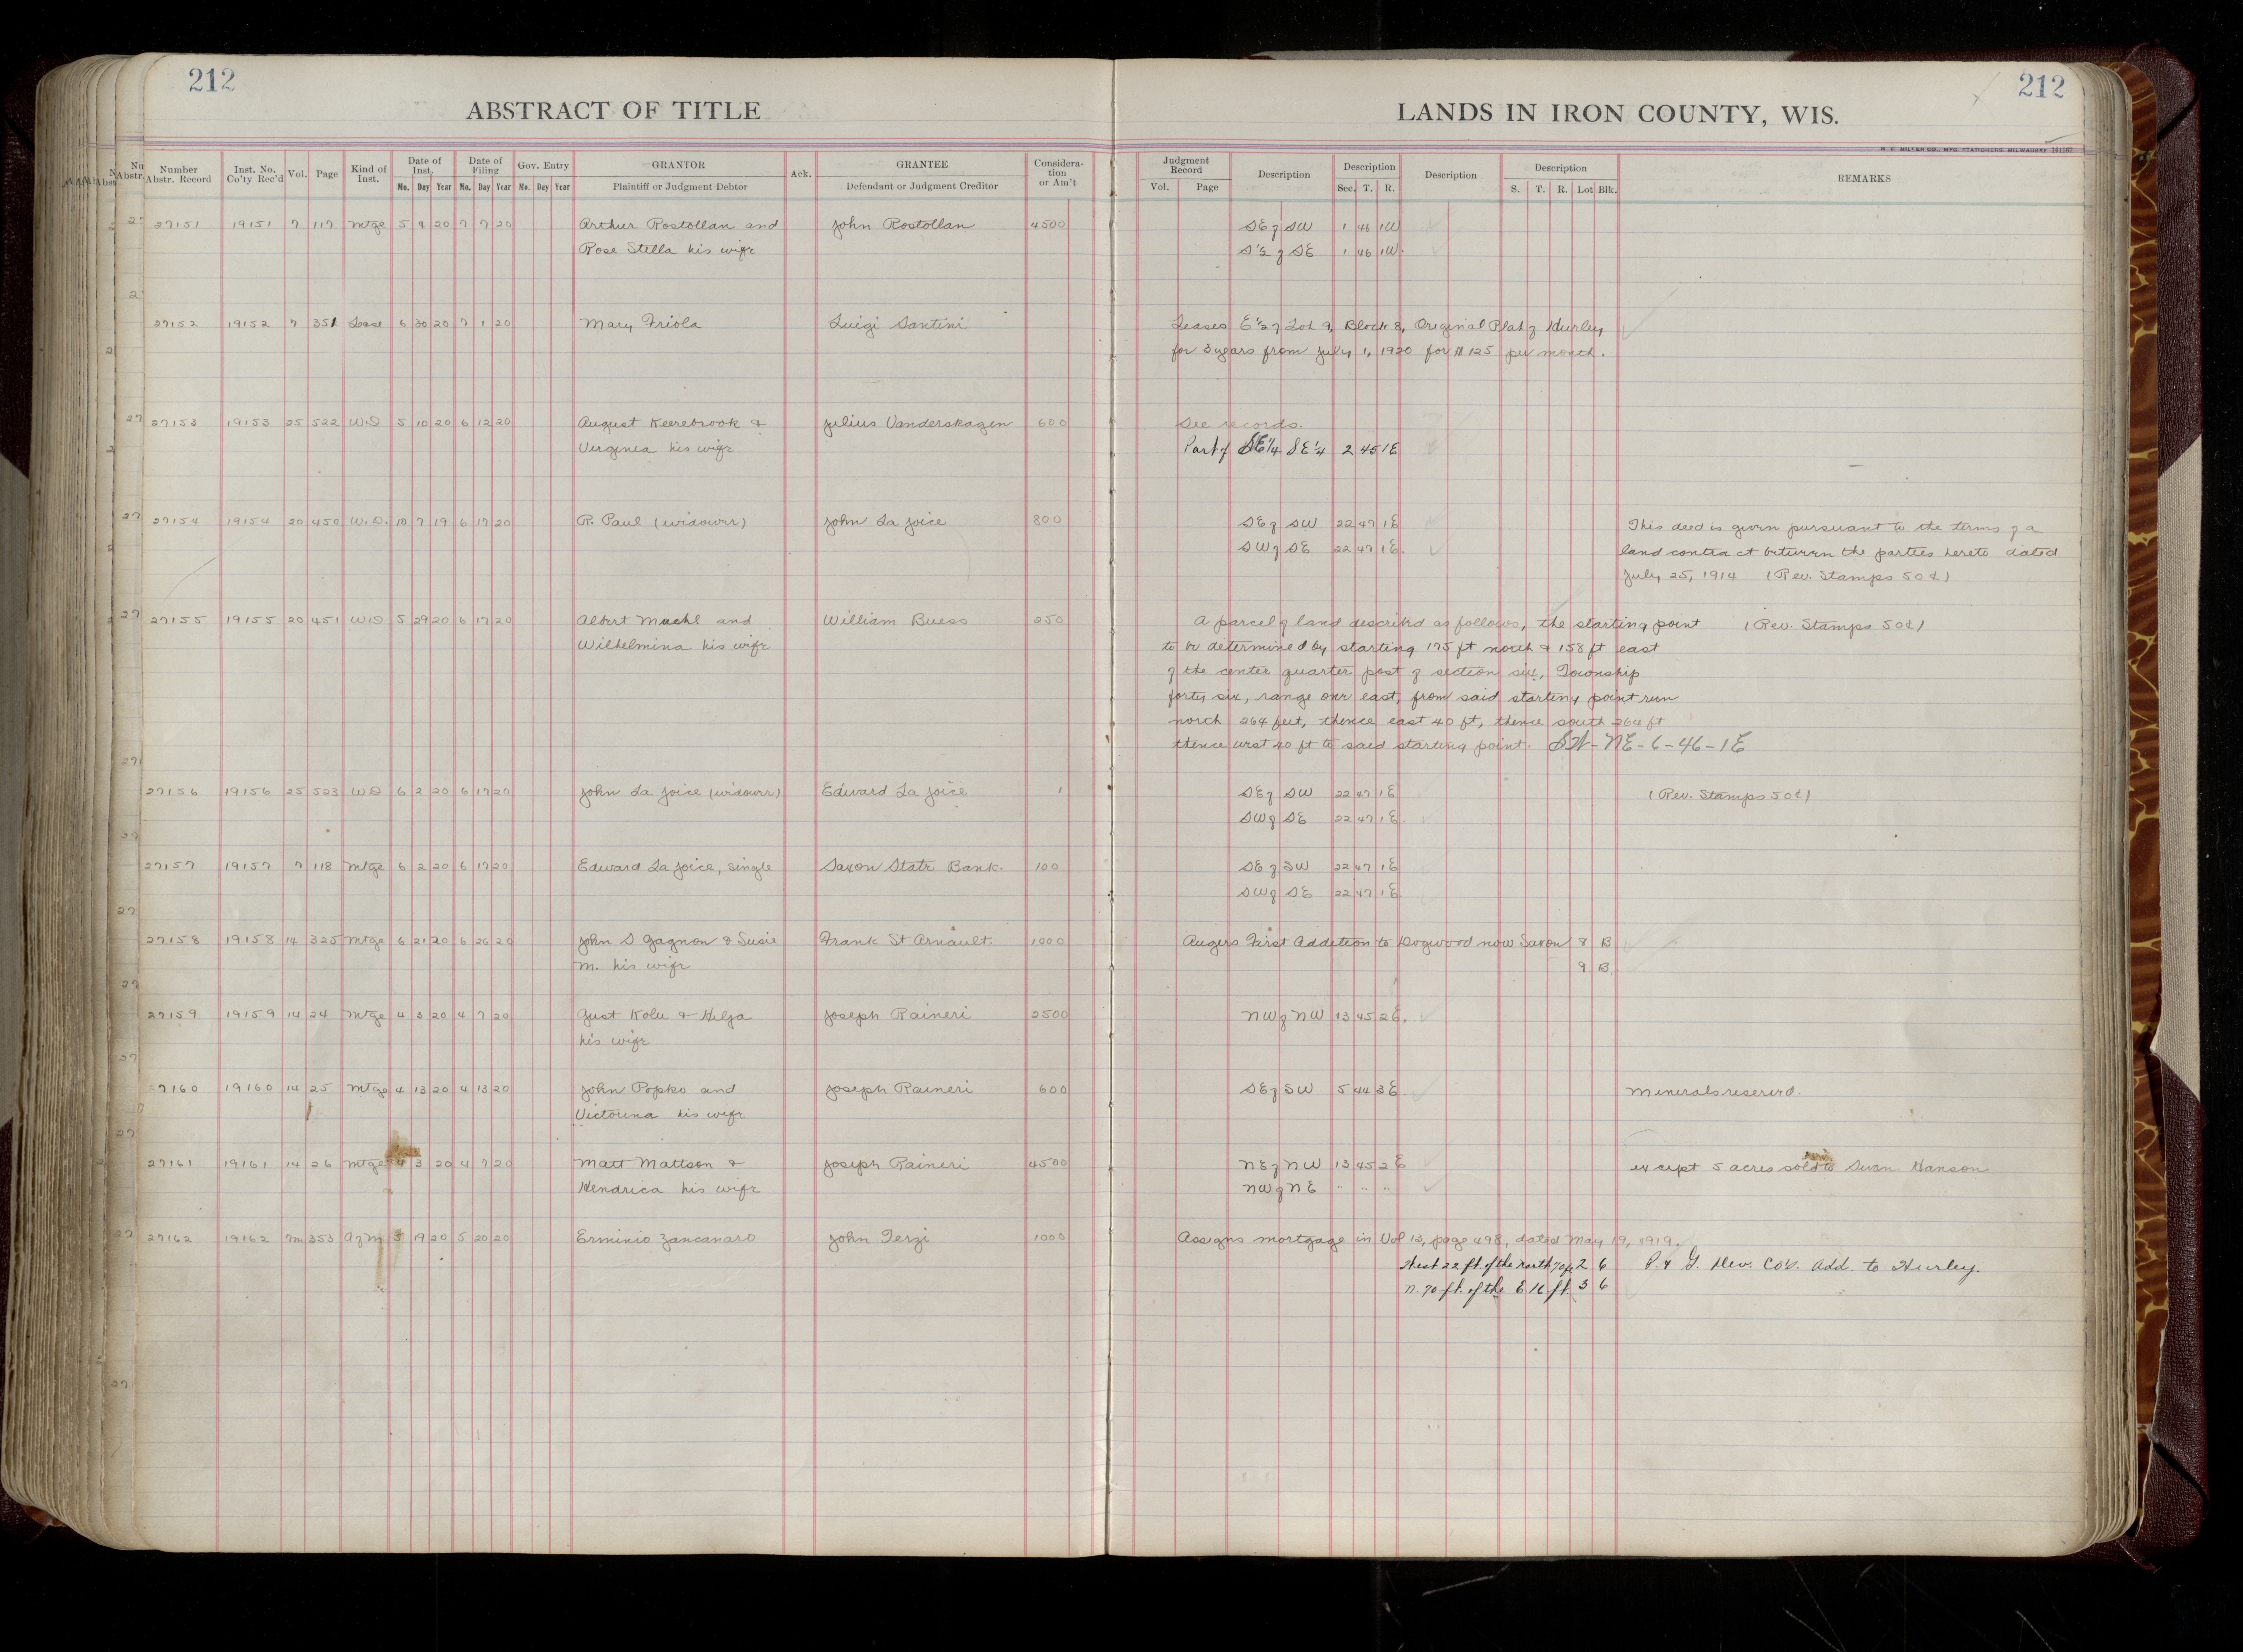 212
212
ABSTRACT OF TITLE
LANDS IN IRON COUNTY, WIS.
H. C. MILLER CO., MFG. STATIONERS, MILWAUKEE
Number Abstr. Record Inst. No. Co'ty Rec'd Vol. Page Kind of Inst. Date of Inst. Date of Filing Gov. Entry GRANTOR Ack. GRANTEE Considera- tion or Am't Judgment Record Description Description Description Description REMARKS
Mo. Day Year Mo. Day Year Mo. Day Year Plaintiff or Judgment Debtor Defendant or Judgment Creditor Vol. Page Sec. T. R. S. T. R. Lot Blk.
27151 19151 7 117 Mtge 5 4 20 7 7 20 Arthur Rostollan and John Rostollan 4500 SE of SW 1 46 1W
Rose Stella his wife S½ of SE 1 46 1W.
27152 19152 7 351 Lease 6 30 20 7 1 20 Mary Friola Luigi Santini Leases E½ of Lot 9, Block 8, Original Plat of Hurley,
for 3 years from July 1, 1920 for $125 per month.
27153 19153 25 522 W.D 5 10 20 6 12 20 August Keerebrook & Julius Vanderskagen 600 See records.
Virginia his wife Part of SE¼ SE¼ 2 45 1E
27154 19154 20 450 W.D. 10 7 19 6 17 20 R. Paul (widower) John La Joice 800 SE of SW 22 47 1E This deed is given pursuant to the terms of a
SW of SE 22 47 1E. land contract between the parties hereto dated
July 25, 1914 (Rev. Stamps 50¢)
27155 19155 20 451 W.D 5 29 20 6 17 20 Albert Muehl and William Buss 250 A parcel of land described as follows, the starting point (Rev. Stamps 50¢)
Wilhelmina his wife to be determined by starting 175 ft north & 158 ft east
of the center quarter post of section six, Township
forty six, range one east, from said starting point run
north 264 feet, thence east 40 ft, thence south 264 ft
thence west 40 ft to said starting point. SW-NE-6-46-1E
27156 19156 25 523 W.D 6 2 20 6 17 20 John La Joice (widower) Edward La Joice 1 SE of SW 22 47 1E (Rev. Stamps 50¢)
SW of SE 22 47 1E.
27157 19157 7 118 Mtge 6 2 20 6 17 20 Edward La Joice, single Saxon State Bank. 100 SE of SW 22 47 1E
SW of SE 22 47 1E
27158 19158 14 325 Mtge 6 21 20 6 26 20 John S Gagnon & Susie Frank St Arnault. 1000 Augers First Addition to Dogwood now Saxon 8 B
M. his wife 9 B
27159 19159 14 24 Mtge 4 3 20 4 7 20 Gust Kolu & Hilja Joseph Raineri 2500 NW of NW 13 45 2E.
his wife
27160 19160 14 25 Mtge 4 13 20 4 13 20 John Popko and Joseph Raineri 600 SE of SW 5 44 3E. Minerals reserved.
Victorina his wife
27161 19161 14 26 Mtge 4 3 20 4 7 20 Matt Mattson & Joseph Raineri 4500 NE of NW 13 45 2E except 5 acres sold to Swan Hanson
Hendrica his wife NW of NE " " "
27162 19162 7m 353 A of M 5 19 20 5 20 20 Erminio Zancanaro John Terzi 1000 Assigns mortgage in Vol 13, page 498, dated May 19, 1919.
West 22 ft. of the North 70 ft 2 6 P. & G. Dev. Co's. Add. to Hurley.
N. 70 ft. of the E. 16 ft. 3 6